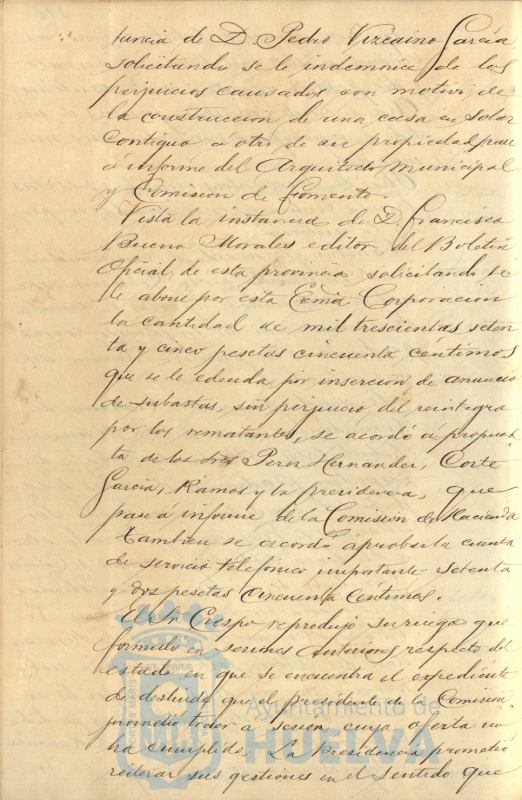 tancia de D. Pedro Vizcaino Garcia
solicitando se le indemnice de los
perjuicios causados con motivo de
la construccion de una casa en solar
contiguo á otro de su propiedad, pase
á informe del Arquitecto Municipal
y Comision de Fomento.
Vista la instancia de D. Francisco
Bueno Morales editor del Boletin
Oficial, de esta provincia solicitando se
le abone por esta Excma Corporacion
la cantidad de mil trescientas seten
ta y cinco pesetas cincuenta céntimos
que se le adeuda por insercion de anuncio
de subastas, sin perjuicio del reintegro
por los rematantes, se acordó á propues
ta de los Sres Perez Hernandez, Corte
Garcia, Ramos y la presidencia, que
pase á informe de la Comision de Hacienda
Tambien se acordó aprobar la cuenta
de servicio telefónico importante setenta
y dos pesetas cincuenta centimos.
El Sr. Crespo reprodujo su ruego que
formuló en sesiones anteriores respecto del
estado en que se encuentra el expediente
de deslinde que el presidente de la Comision
prometio traer a sesion cuya oferta no
ha cumplido. La Presidencia prometió
reiterar sus gestiones en el sentido que
Ayuntamiento de
HUELVA